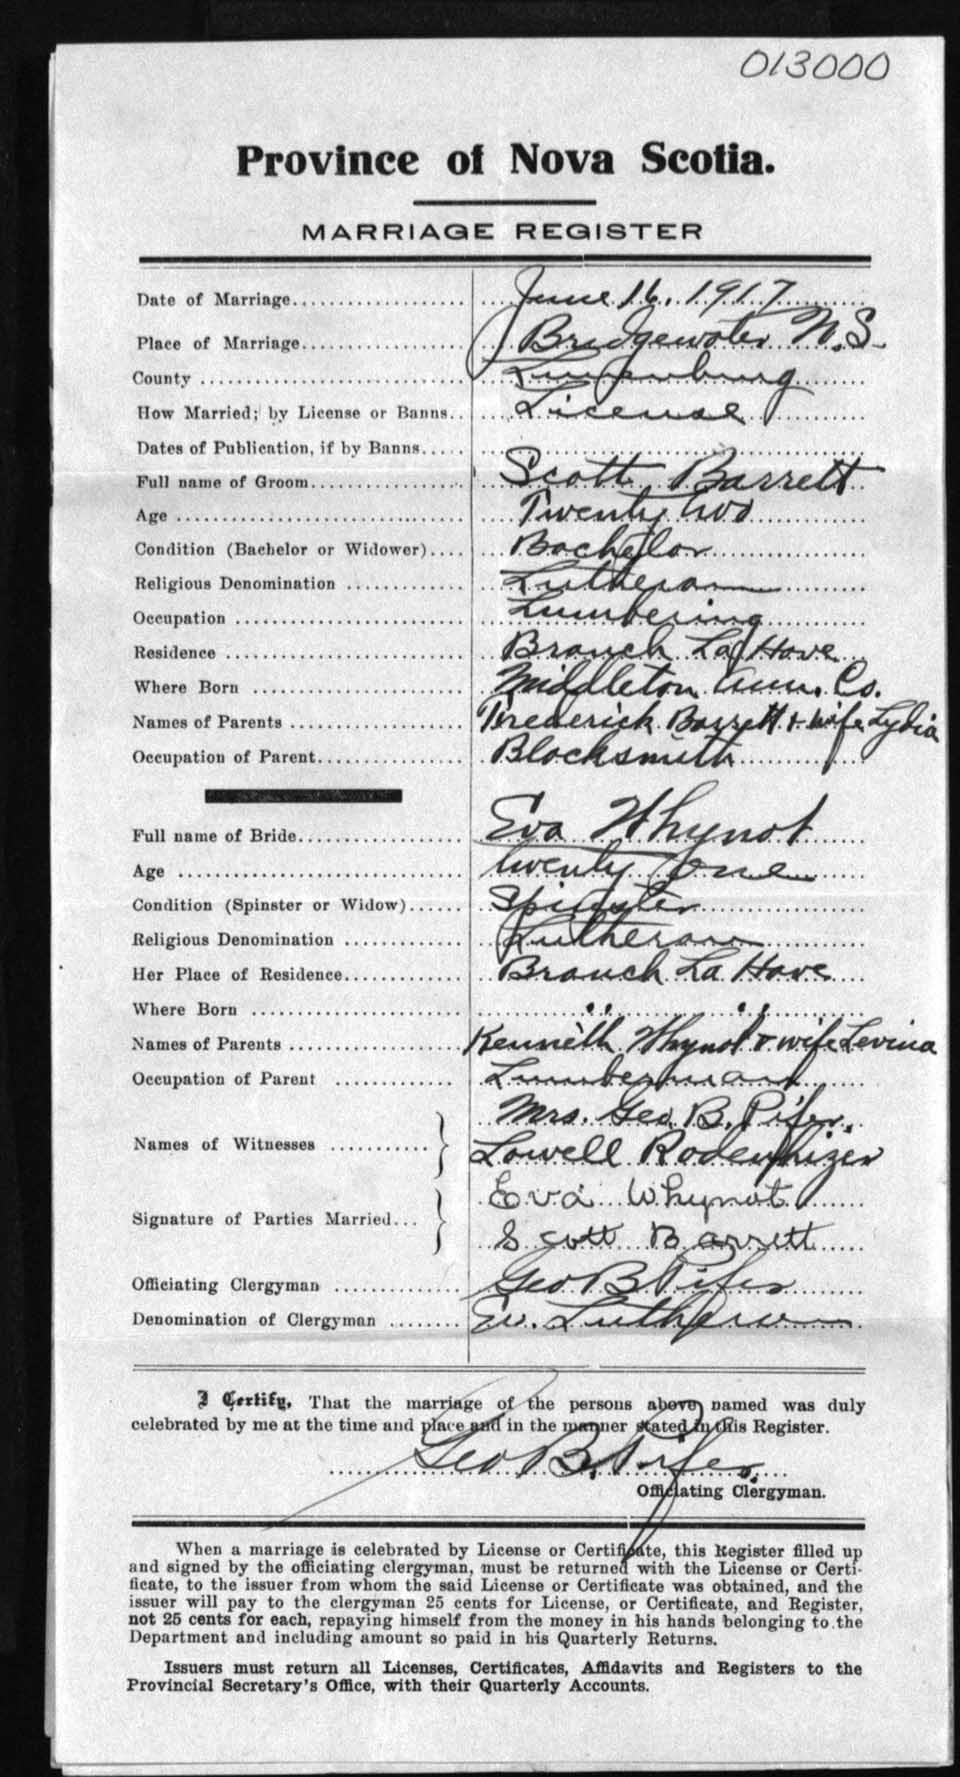 013000
Province of Nova Scotia.
MARRIAGE REGISTER
Date of Marriage................... June 16, 1917
Place of Marriage................... Bridgewater N.S.
County ......................... Lunenburg
How Married; by License or Banns.. License
Dates of Publication, if by Banns.....
Full name of Groom.................. Scott Barrett
Age ............................ Twenty two
Condition (Bachelor or Widower).... Bachelor
Religious Denomination ............ Lutheran
Occupation ....................... Lumbering
Residence ........................ Branch La Have
Where Born ...................... Middleton Ann. Co.
Names of Parents .................. Frederick Barrett & wife Lydia
Occupation of Parent............... Blacksmith
Full name of Bride.................. Eva Whynot
Age ............................ twenty one
Condition (Spinster or Widow)...... Spinster
Religious Denomination ............ Lutheran
Her Place of Residence............. Branch La Have
Where Born ...................... " "
Names of Parents .................. Kenneth Whynot & wife Levina
Occupation of Parent ............. Lumberman
Mrs. Geo. B. Pifer.
Names of Witnesses ...........
Lowell Rodenhizer
Eva Whynot
Signature of Parties Married...
Scott Barrett
Officiating Clergyman ............. Geo B Pifer
Denomination of Clergyman ........ Ev. Lutheran
I Certify, That the marriage of the persons above named was duly
celebrated by me at the time and place and in the manner stated in this Register.
Geo B. Pifer.
Officiating Clergyman.
When a marriage is celebrated by License or Certificate, this Register filled up
and signed by the officiating clergyman, must be returned with the License or Certi-
ficate, to the issuer from whom the said License or Certificate was obtained, and the
issuer will pay to the clergyman 25 cents for License, or Certificate, and Register,
not 25 cents for each, repaying himself from the money in his hands belonging to the
Department and including amount so paid in his Quarterly Returns.
Issuers must return all Licenses, Certificates, Affidavits and Registers to the
Provincial Secretary's Office, with their Quarterly Accounts.